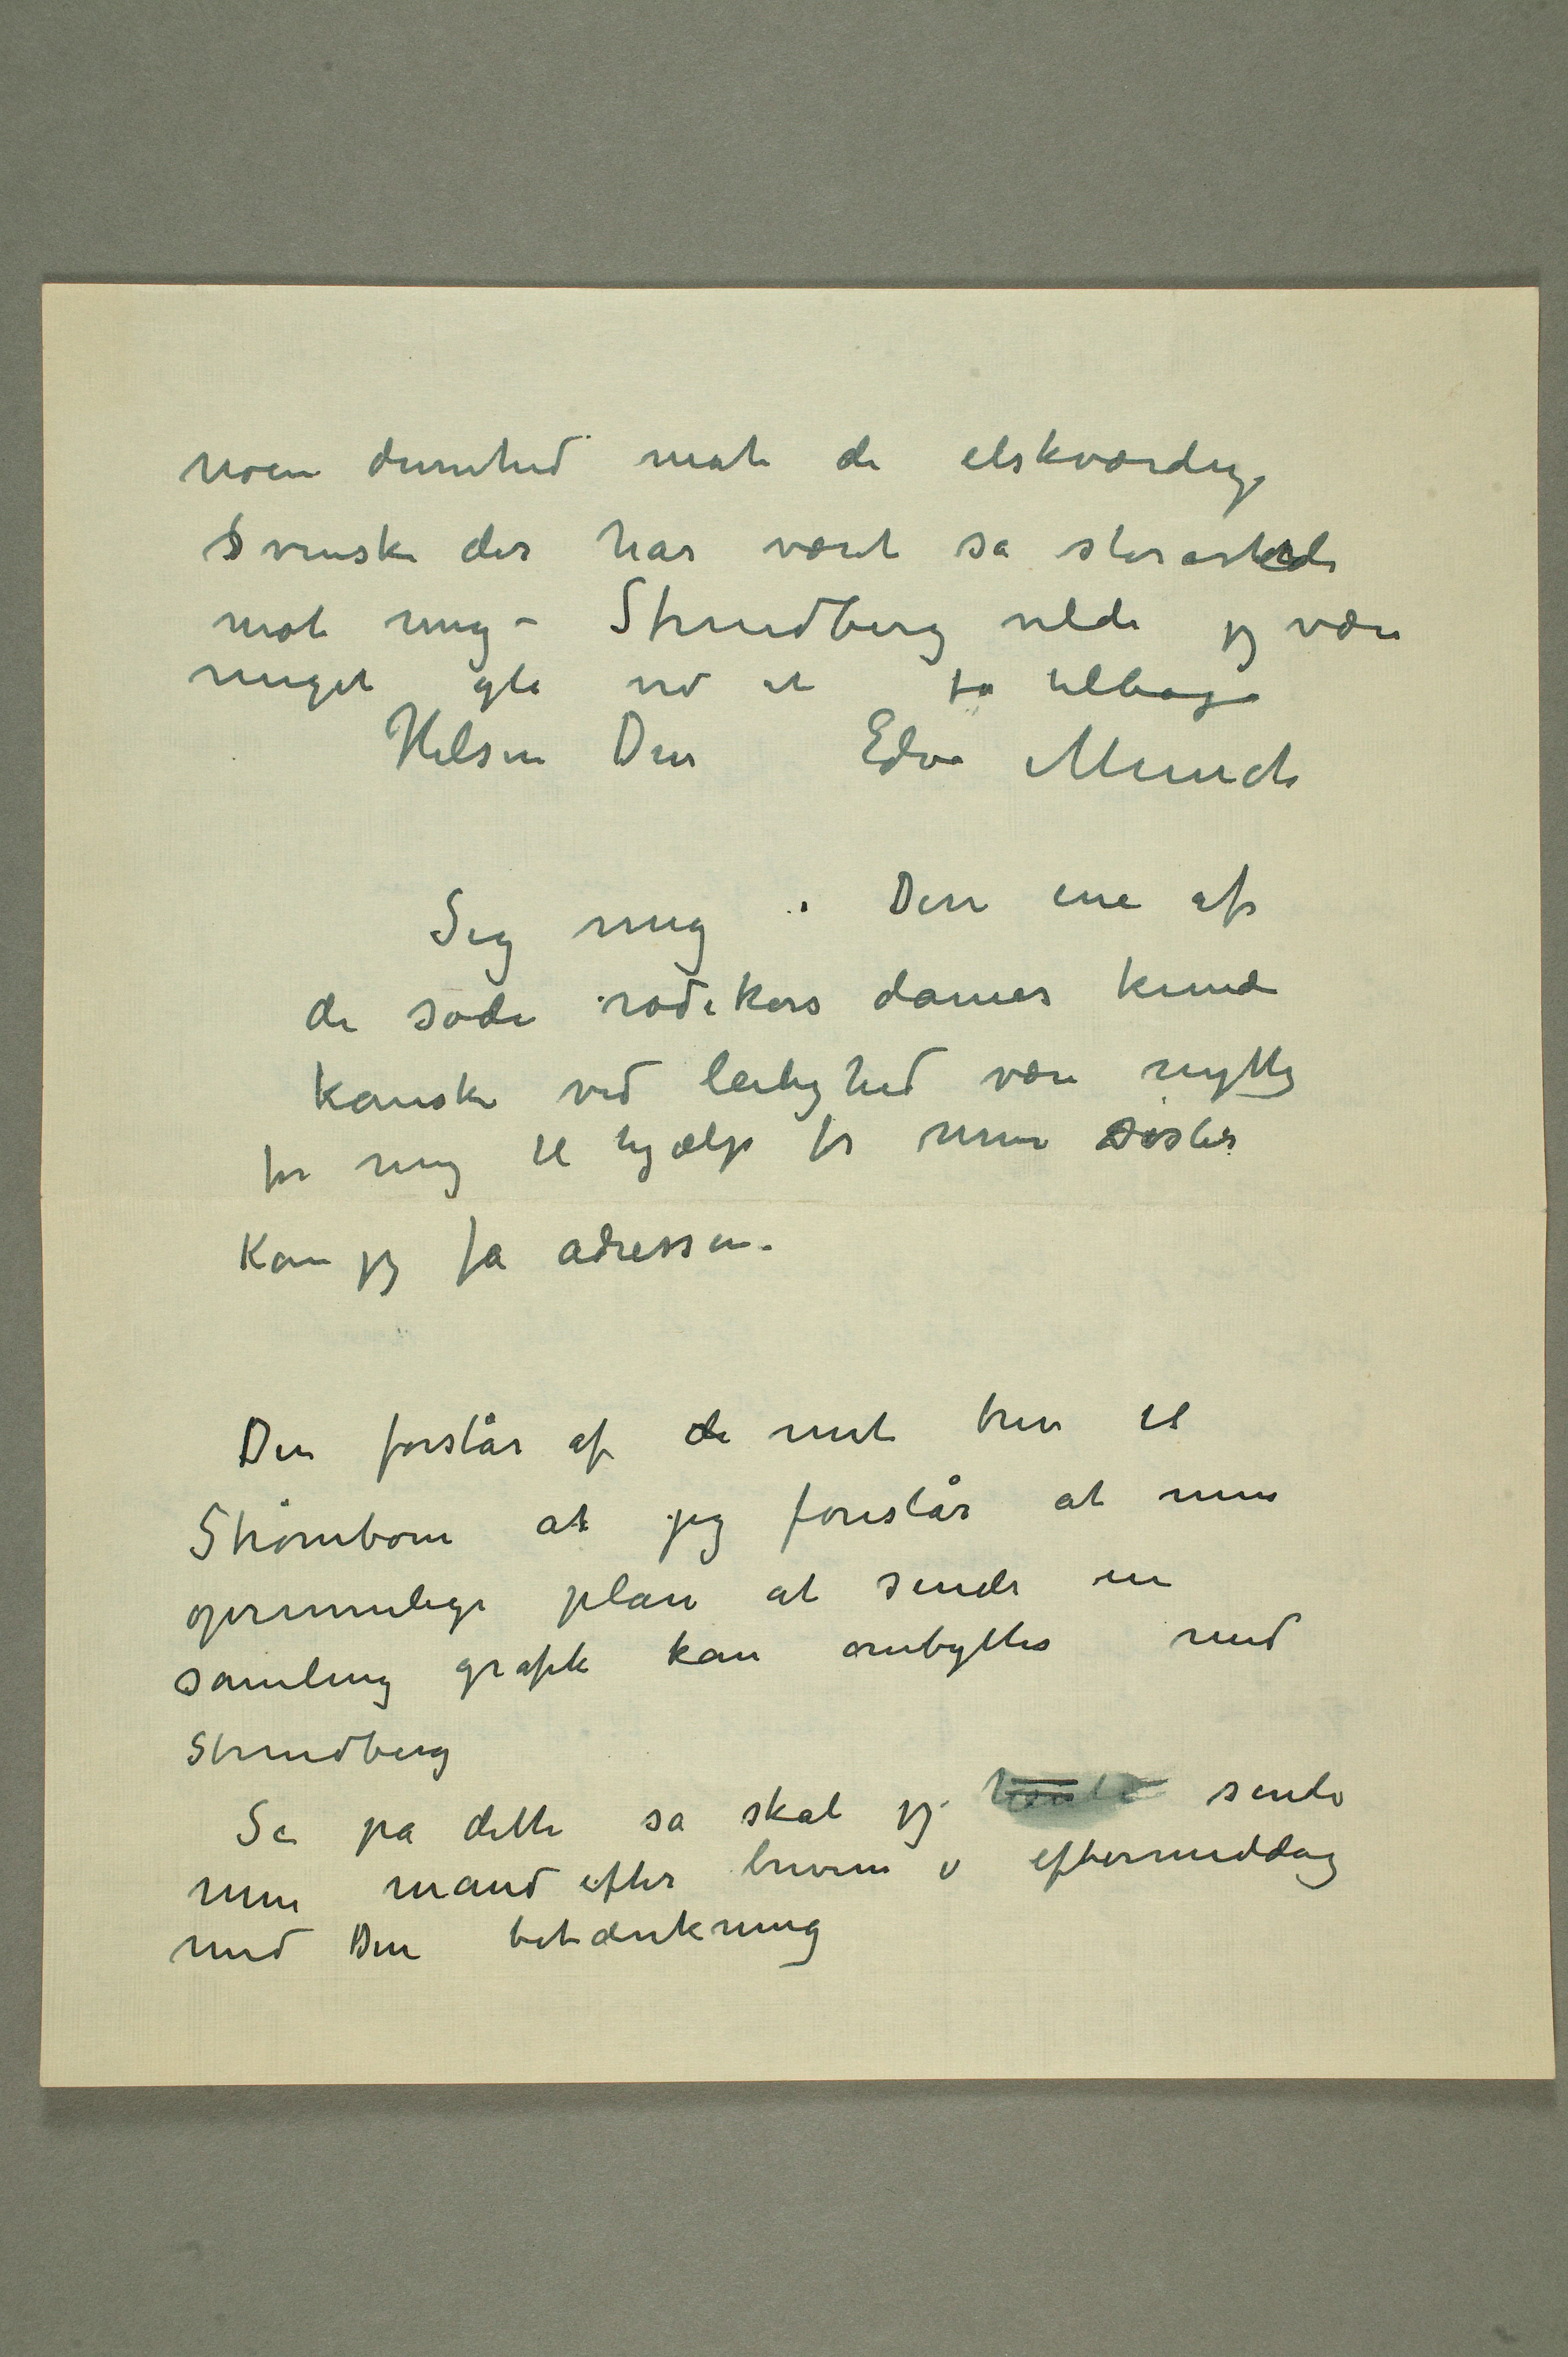 noen dumhed mot de elskværdige
Svenske der har været så storartede
mot mig – Strindberg vilde jeg være
meget gla ved at få tilbage
Hilsen Din Edv Munch
Sig mig : Den ene af
de søde rødekors damer kunde
kanske ved leilighed være nyttig
for mig til hjælp for min søster
Kan jeg få adressen.
Du forstår af de mit brev til
Strömbom at jeg foreslår at min
oprinnelige plan at sende en
samling grafik kan ombyttes med
Strindberg
Se på dette så skal jeg hente sende
min mand efter brevene i eftermiddag
med Din betænkning